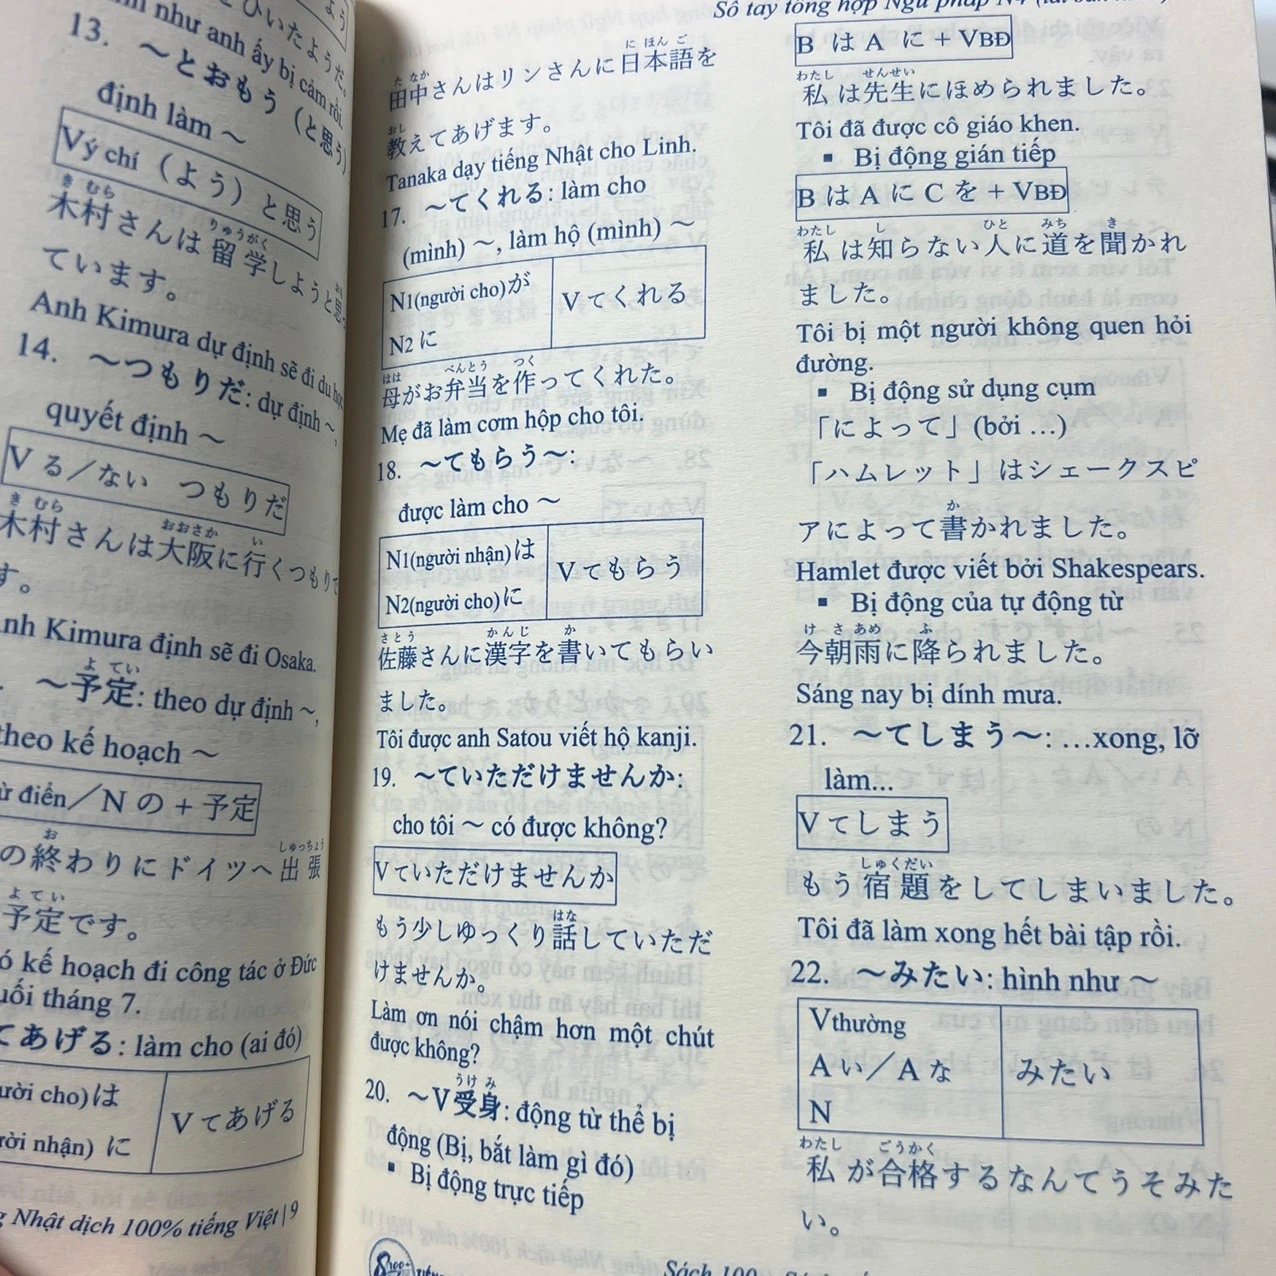 như anh ấy bị cảm rồi.
13. ～とおもう（と思う）
định làm ～
Vý chí（よう）と思う
きむら りゅうがく
木村さんは留学しようと思っ
ています。
Anh Kimura dự định sẽ đi du học.
14. ～つもりだ: dự định ～,
quyết định ～
Vる／ない つもりだ
きむら おおさか い
木村さんは大阪に行くつもりで
す。
Kimura định sẽ đi Osaka.
よてい
～予定: theo dự định ～,
theo kế hoạch ～
điển／Nの + 予定
お しゅっちょう
の終わりにドイツへ出張
よてい
予定です。
kế hoạch đi công tác ở Đức
tháng 7.
てあげる: làm cho (ai đó)
cho)は
nhận) に
Vてあげる
Nhật dịch 100% tiếng Việt | 9
Sổ tay tổng hợp Ngữ pháp N4
たなか にほんご
田中さんはリンさんに日本語を
おし
教えてあげます。
Tanaka dạy tiếng Nhật cho Linh.
17. ～てくれる: làm cho
(mình) ～, làm hộ (mình) ～
N1(người cho)が
N2 に
Vてくれる
はは べんとう つく
母がお弁当を作ってくれた。
Mẹ đã làm cơm hộp cho tôi.
18. ～てもらう～:
được làm cho ～
N1(người nhận)は
N2(người cho)に
Vてもらう
さとう かんじ か
佐藤さんに漢字を書いてもらい
ました。
Tôi được anh Satou viết hộ kanji.
19. ～ていただけませんか:
cho tôi ～ có được không?
Vていただけませんか
はな
もう少しゆっくり話していただ
けませんか。
Làm ơn nói chậm hơn một chút
được không?
うけみ
20. ～V受身: động từ thể bị
động (Bị, bắt làm gì đó)
▪ Bị động trực tiếp
B は A に + VBĐ
わたし せんせい
私は先生にほめられました。
Tôi đã được cô giáo khen.
▪ Bị động gián tiếp
B は A に C を + VBĐ
わたし し ひと みち き
私は知らない人に道を聞かれ
ました。
Tôi bị một người không quen hỏi
đường.
▪ Bị động sử dụng cụm
「によって」(bởi …)
「ハムレット」はシェークスピ
か
アによって書かれました。
Hamlet được viết bởi Shakespears.
▪ Bị động của tự động từ
けさあめ ふ
今朝雨に降られました。
Sáng nay bị dính mưa.
21. ～てしまう～: …xong, lỡ
làm...
Vてしまう
しゅくだい
もう宿題をしてしまいました。
Tôi đã làm xong hết bài tập rồi.
22. ～みたい: hình như ～
Vthường
Aい／Aな
N
みたい
わたし ごうかく
私が合格するなんてうそみた
い。
Sách 100